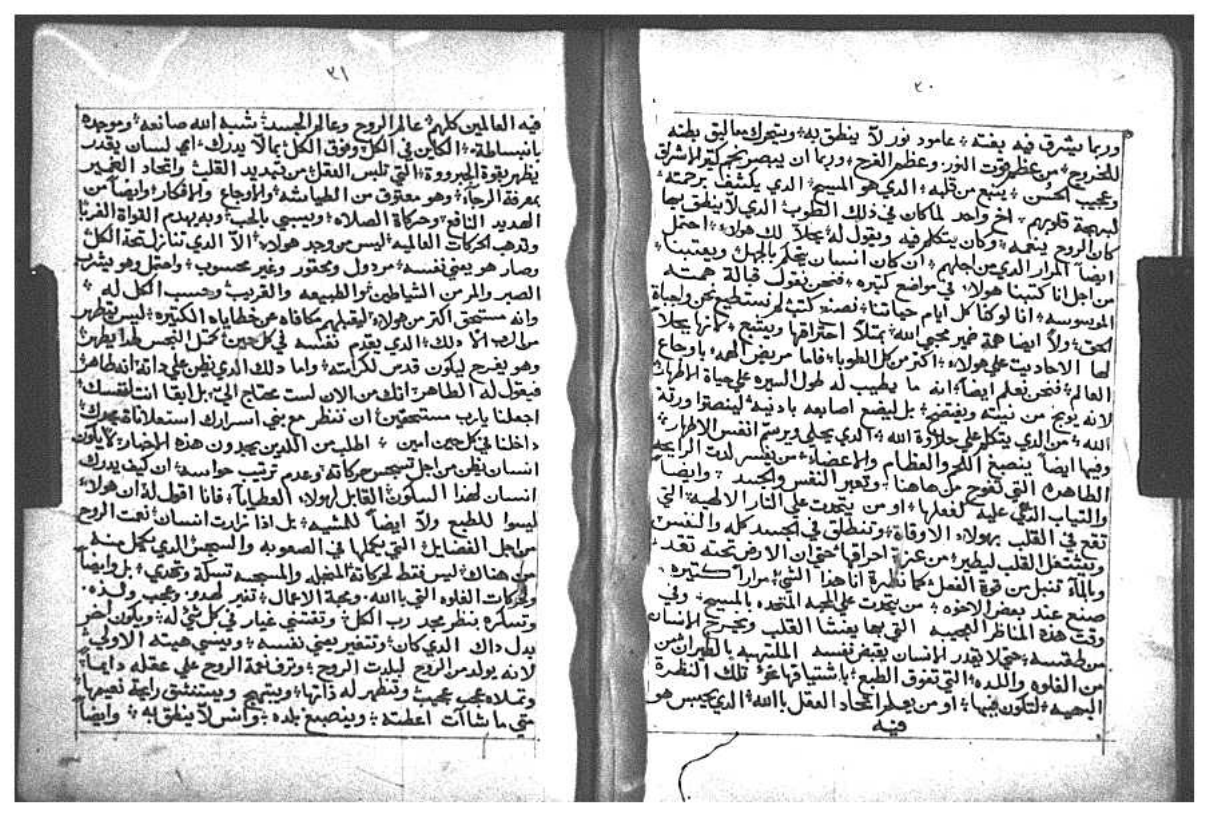 ٢٠
وربما يشرق فيه بغتة عامود نور لا ينطق به ويتحرك معاليق بطنه
للخروج من عظم قوت النور وعظم الفرح وربما ان يبصر نجم كتير الاشراق
وعجيب الحسن ينبع من قلبه الدي هو المسيح الدي يكشف برحمته
لبهجة قلوبهم اخر واحد لما كان في ذلك الطوب الدي لا ينطق بها
كان الروح ينعمه وكان يتكلم فيه ويقول له يجلا لك هولاء احتمل
ايضا المرار الدي من اجلهم ان كان انسان يتحكم بالجهل ويعتبنا
من اجل انا كتبنا هولاء في مواضع كتيره فنحن نقول قبالة همته
الموسوسه انا لو كنا كل ايام حياتنا نصنع كتب لم نستطيع نحن واجباة
الحق ولا ايضا همة ضمير محبي الله تمتلا احتراقها ويتبع كانها يجلا
لها الاحاديت علي هولاء اكتر من كل الطوبا فاما مريض الهمه باوجاع
العالم فنحن نعلم ايضا انه ما يطيب له طول السيره علي حياة الاطهار
لانه يويح من نيته ويفتضح بل ليضع اصابعه بادنيه لينصتوا ورتة
الله من الدي يتكلم علي حلاوة الله الدي يحلي ويرسم انفس الاطهار
وفيها ايضا ينصبغ اللحم والعظام والاعضا من يفسر لدت الرايحه
الطاهره التي تفوح من هاهنا وتعبر النفس والجسد وايضا
والتياب الدي عليه لفعلها او من يتحدت علي النار الالهيه التي
تقع في القلب بهولاء الاوقاة وتنطلق في الجسد كله والنفس
ويشتعل القلب ليطير من عزة احراقها حتي ان الارض تحته تقد
وبالماء تنبل من قوة الفعل كما نظرة انا هدا الشي مرارا كتيره
صنع عند بعض الاخوه من يتحدت علي المحبه المتحده بالمسيح وفي
وقت هده المناظر العجيبه التي بها يغشا القلب ويخرج الانسان
من طقسه حتي لا يقدر الانسان يقبض نفسه الملتهبه بالطيران من
من الغلوه واللده التي تفوق الطبع باشتياقها نحو تلك النظرة
البهيه لتكون فيها او من يعلم اتحاد العقل بالله الدي يحبس هو
فيه
٢١
فيه العالمين كلهم عالم الروح وعالم الجسد شبه الله صانعه وموجده
بانبساطه الكاين في الكل وفوق الكل بما لا يدرك اي لسان يقدر
يظهر بقوة الجبرووة التي تلبس العقل من تبديد القلب واتحاد الضمير
بمعرفة الرجاء وهو معتوق من الطياشه والاوجاع والافكار وايضا من
الهديد النافع وحركاة الصلاه ويسبي بالحب وبه يهدم القواة الغربا
وتدهب الحركات العالميه ليس من وجد هولاء الا الدي تنازل تحة الكل
وصار هو يعني نفسه مردول ومحقور وغير محسوب واحتمل وهو يشرب
الصبر والمر من الشياطين والطبيعه والقريب وحسب الكل له
وانه مستحق اكتر من هولاء ليقبلهم مكافاه عن خطاياه الكتيره ليس يتطهر
من الب الا دلك الدي يقدم نفسه في كل حين تحتمل النجس لهدا يطهر
وهو يفرح ليكون قدس لكرامته واما دلك الدي يظن علي داته انه طاهر
فيقول له الطاهر انك من الان لست محتاج الي بل ابقا انت لنفسك
اجعلنا يارب مستحقين ان ننظر مع بني اسرارك استعلاناة مجدك
داخلنا في كل حين امين اطلب من اللدين يجدون هده الاخبار لا يكون
انسان يظن من اجل تسجس حركاته وعدم ترتيب حواسه ان كيف يدرك
انسان لهدا السكون القابل لهولاء العطايا فانا اقول له ان هولاء
ليسوا للطبع ولا ايضا للمشيه بل ادا نزلت انسان نعمت الروح
من اجل الفضايل التي يكملها في الصعوبه والسجس الدي يكمل منه
من هناك ليس فقط لحركاته المنحله والمسجسه تسكة وتهدي بل وايضا
ولحركات الغلوه التي بالله ومحبة الاعمال تغير لهدو وعجب ولده
وتسكره بنظر مجد رب الكل وتقتني غيار في كل شي له ويكون اخر
بدل داك الدي كان وتتغير يعني نفسه وينسي هيته الاولي
لانه يولد من الروح ليلدت الروح وترف نعمة الروح علي عقله دايما
وتملاه عجب عجيب وتظهر له داتها ويبتهج ويستنشق رايحة نعيمها
متي ما شاآت اعطته وينصبغ بلده وانس لا ينطق به وايضا